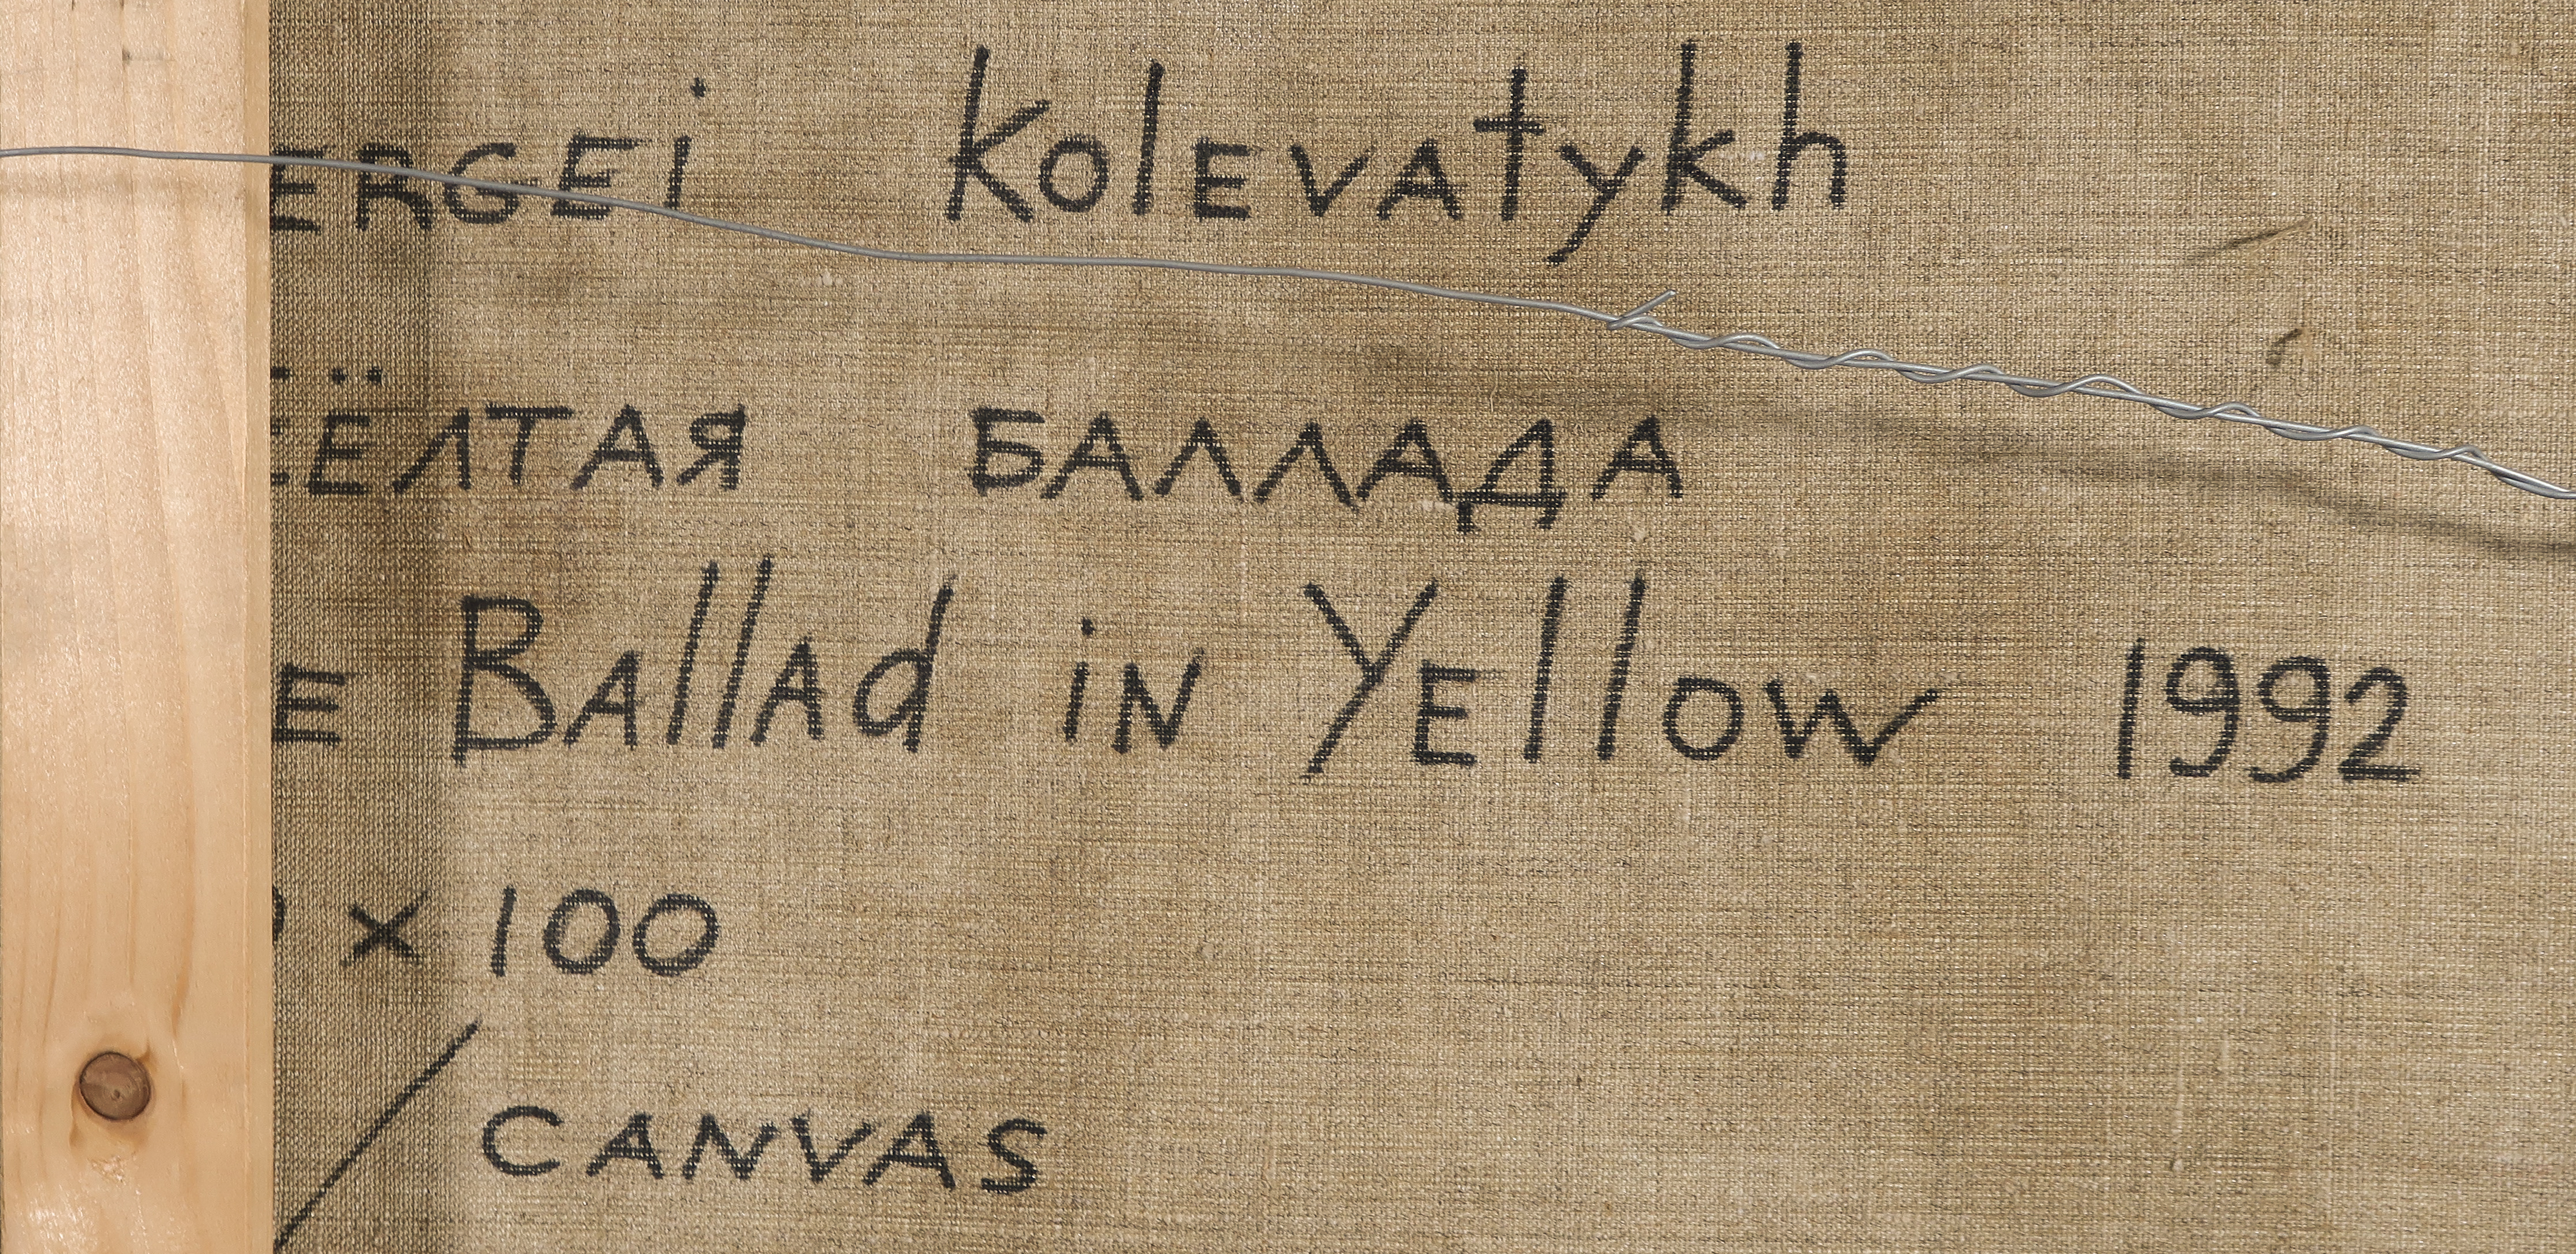 ERGEi KolEvAtykh
ЁЛТАЯ БАЛЛАДА
E BAllAd iN YEllow 1992
x 100
/ CANVAS